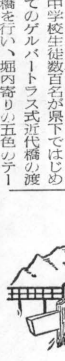 中学校生徒数百名が県下ではじめ
てのゲルバートラス式近代橋の渡
橋を行い、堀内寄りの五色のテー